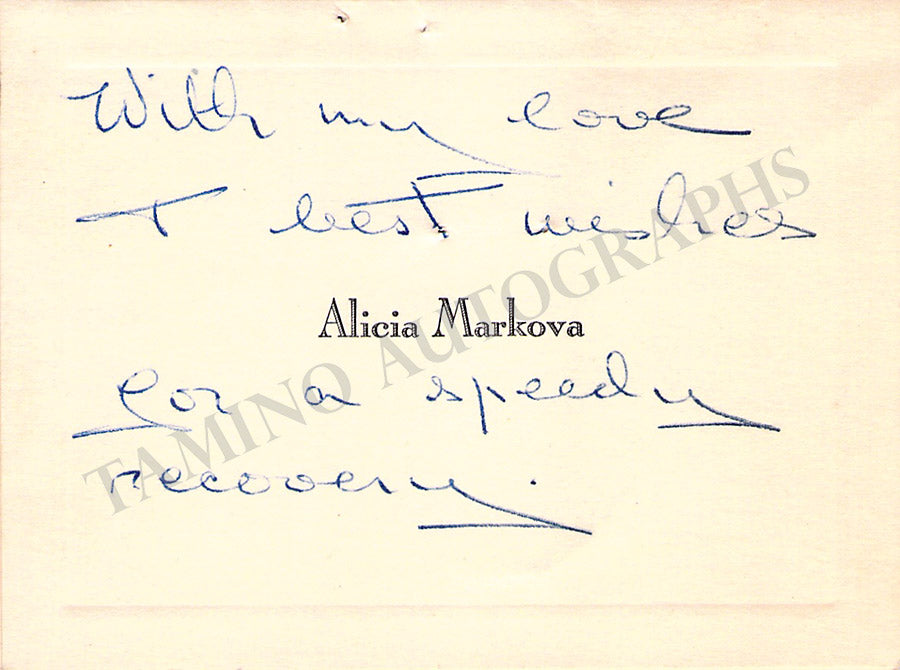 With my love
+ best wishes
Alicia Markova
for a speedy
recovery.
TAMINO AUTOGRAPHS